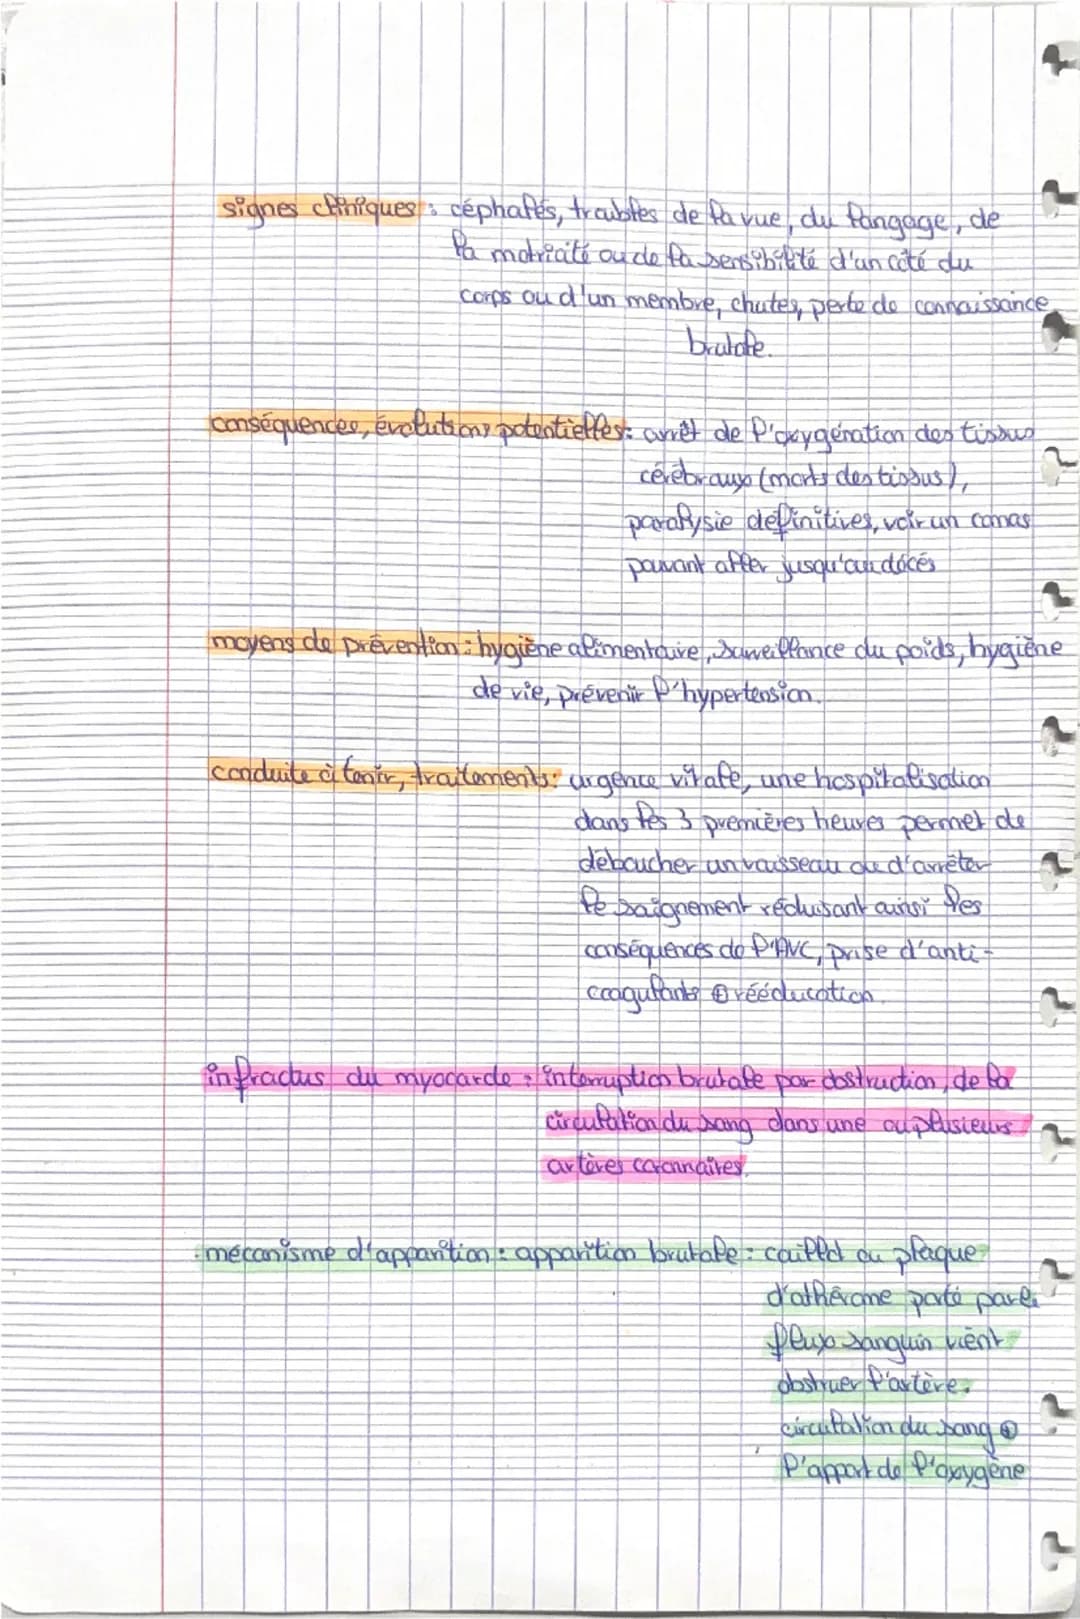 signes cliniques : céphalés, troubles de la vue, du langage, de
la motricité ou de la sensibilité d'un coté du
corps ou d'un membre, chutes, perte de connaissance
brutale.
conséquences, évolutions potentielles : arrêt de l'oxygénation des tissus
cérébraux (morts des tissus),
paralysie définitives, voir un comas
pouvant aller jusqu'au décés
moyens de prévention : hygiène alimentaire, surveillance du poids, hygiène
de vie, prévenir l'hypertension.
conduite à tenir, traitements : urgence vitale, une hospitalisation
dans les 3 premières heures permet de
déboucher un vaisseau ou d'arrêter
le saignement réduisant ainsi les
conséquences de l'AVC, prise d'anti-
coagulants ⊕ rééducation.
infractus du myocarde : interruption brutale par obstruction, de la
circulation du sang dans une ou plusieurs
artères coronnaires.
mécanisme d'apparition : apparition brutale : caillot ou plaque
d'athérome porté par le
flux sanguin vient
obstruer l'artère.
circulation du sang ⊕
l'apport de l'oxygène